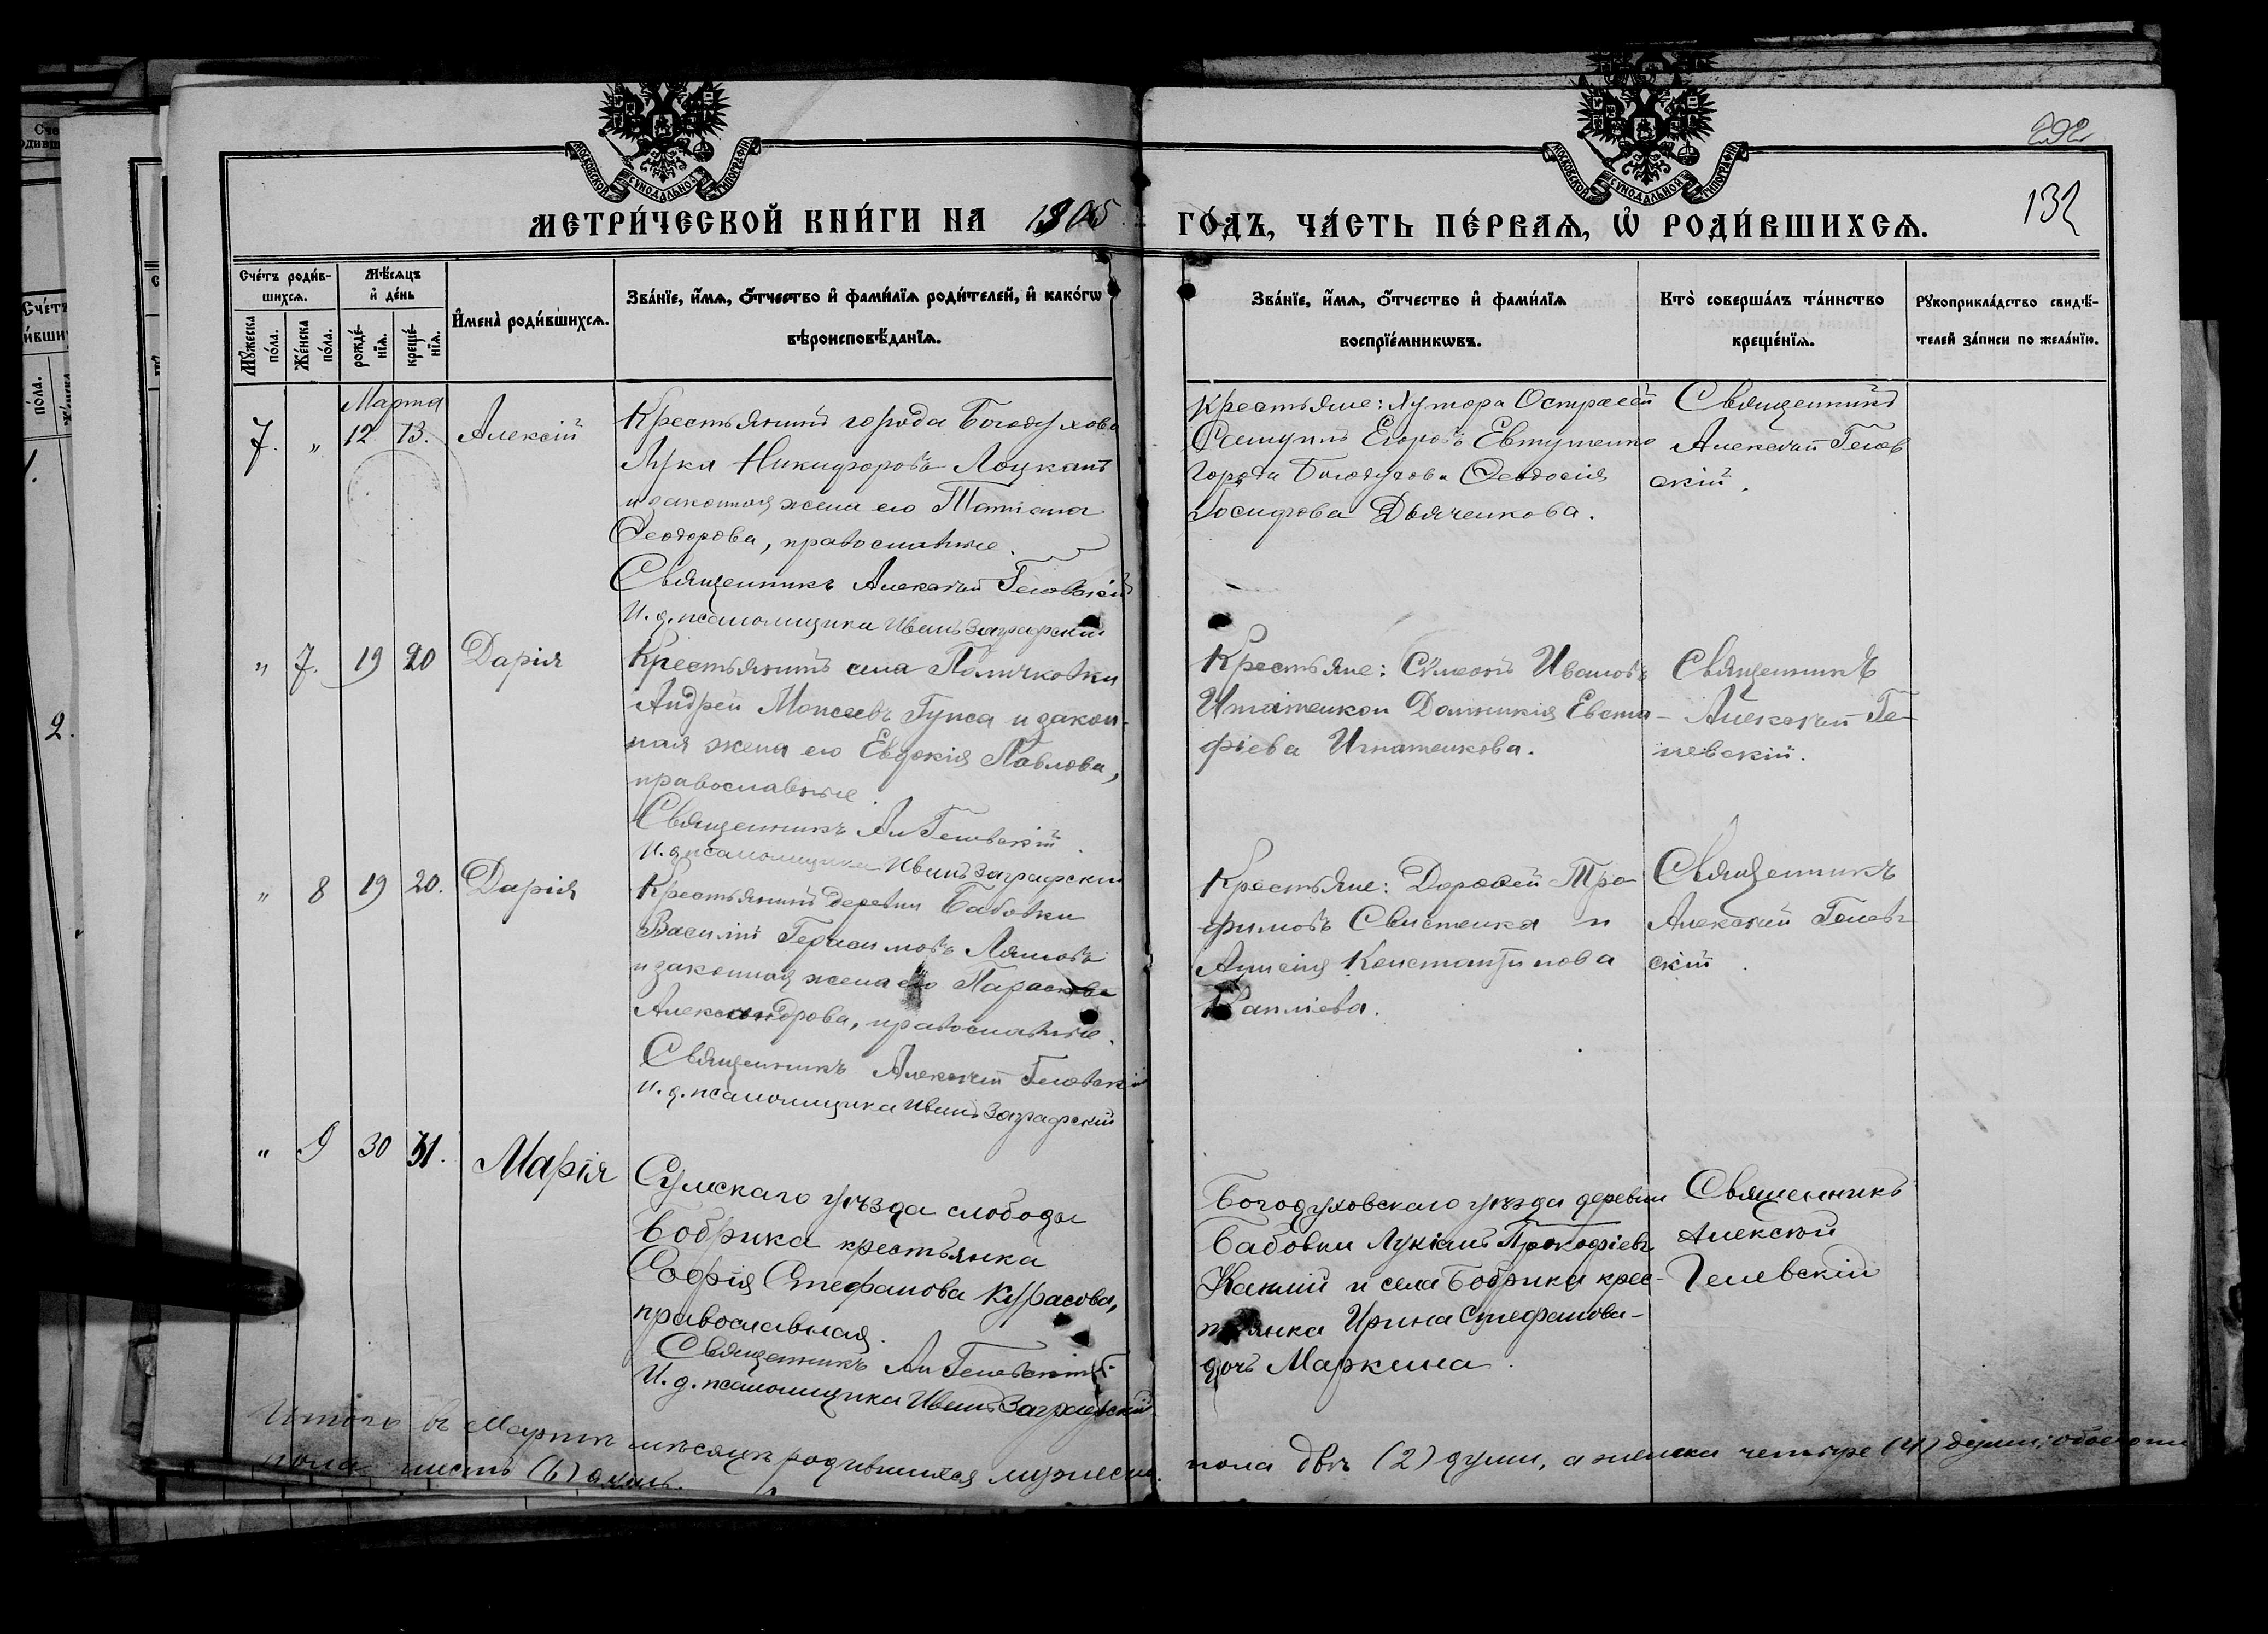 МОСКОВСКОЙ СУНОДАЛЬНОЙ ТИПОГРАФІИ
МОСКОВСКОЙ СУНОДАЛЬНОЙ ТИПОГРАФІИ
292
132
МЕТРИ́ЧЕСКОЙ КНИ́ГИ НА 1905 ГО́ДЪ, ЧА́СТЬ ПЕ́РВАѦ, Ѡ҆ РОДИ́ВШИХСѦ.
Сче́тъ роди́в-
шихсѧ.
Мꙋ́жеска по́ла.
Же́нска по́ла.
Мѣ́сѧцъ
и҆ де́нь
рожде́-
нїѧ.
креще́-
нїѧ.
И҆мена̀ роди́вшихсѧ.
Зва́нїе, и҆́мѧ, ѻ҆́тчество и҆ фами́лїѧ роди́телей, и҆ како́гѡ
вѣроисповѣ́данїѧ.
Зва́нїе, и҆́мѧ, ѻ҆́тчество и҆ фами́лїѧ
воспрїе́мникѡвъ.
Кто̀ соверша́лъ та́инство
креще́нїѧ.
Рꙋкоприкла́дство свидѣ́-
телей за́писи по жела́нїю.
Марта
7. " 12 13. Алексій
Крестьянинъ города Богодухова
Лука Никифоровъ Лоцманъ
и законная жена его Татіана
Ѳеодорова, православные.
Священникъ Алексѣй Гелевскій
И. д. псаломщика Иванъ Заграфскій
Крестьяне: хутора
Егоровъ Евтушенко
города Богодухова Ѳеодосія
Іосифова Дьяченкова.
Священникъ
Алексѣй Гелев
скій.
" 7. 19 20 Дарія
Крестьянинъ села Поличковки
Андрей Моисеевъ Гупса и закон-
ная жена его Евдокія Павлова,
православные.
Священникъ Ал Гелевскій.
И. д. псаломщика Иванъ Заграфскій
Крестьяне: Сѵмеонъ Ивановъ
Игнатенко и Домникія Евста-
фіева Игнатенкова.
Священникъ
Алексѣй Ге-
левскій.
" 8 19 20. Дарія
Крестьянинъ деревни Бабовки
Василій Герасимовъ Ляшовъ
и законная жена его Параскева
Александрова, православные.
Священникъ Алексѣй Гелевскій
И. д. псаломщика Иванъ Заграфскій
Крестьяне: Дороѳей Тро-
фимовъ Свистенка и
Аѳисія Константинова
Каплiева.
Священникъ
Алексѣй Гелев-
скій.
" 9 30 31. Марія
Сумскаго уѣзда слободы
Бобрика крестьянка
Софія Стефанова Курасова,
православная.
Священникъ Ал Гелевскій
И. д. псаломщика Иванъ Заграфскій
Богодуховскаго уѣзда деревни
Бабовки Лукіанъ Прокофіевъ
Каплій и села Бобрика крес-
тьянка Ирина Стефанова-
дочь Маркина.
Священникъ
Алексѣй
Гелевскій
Итого въ Мартѣ мѣсяцѣ родившихся мужеска пола двѣ (2) души, а женска четыре (4) души; обоего
пола шесть (6) душъ.